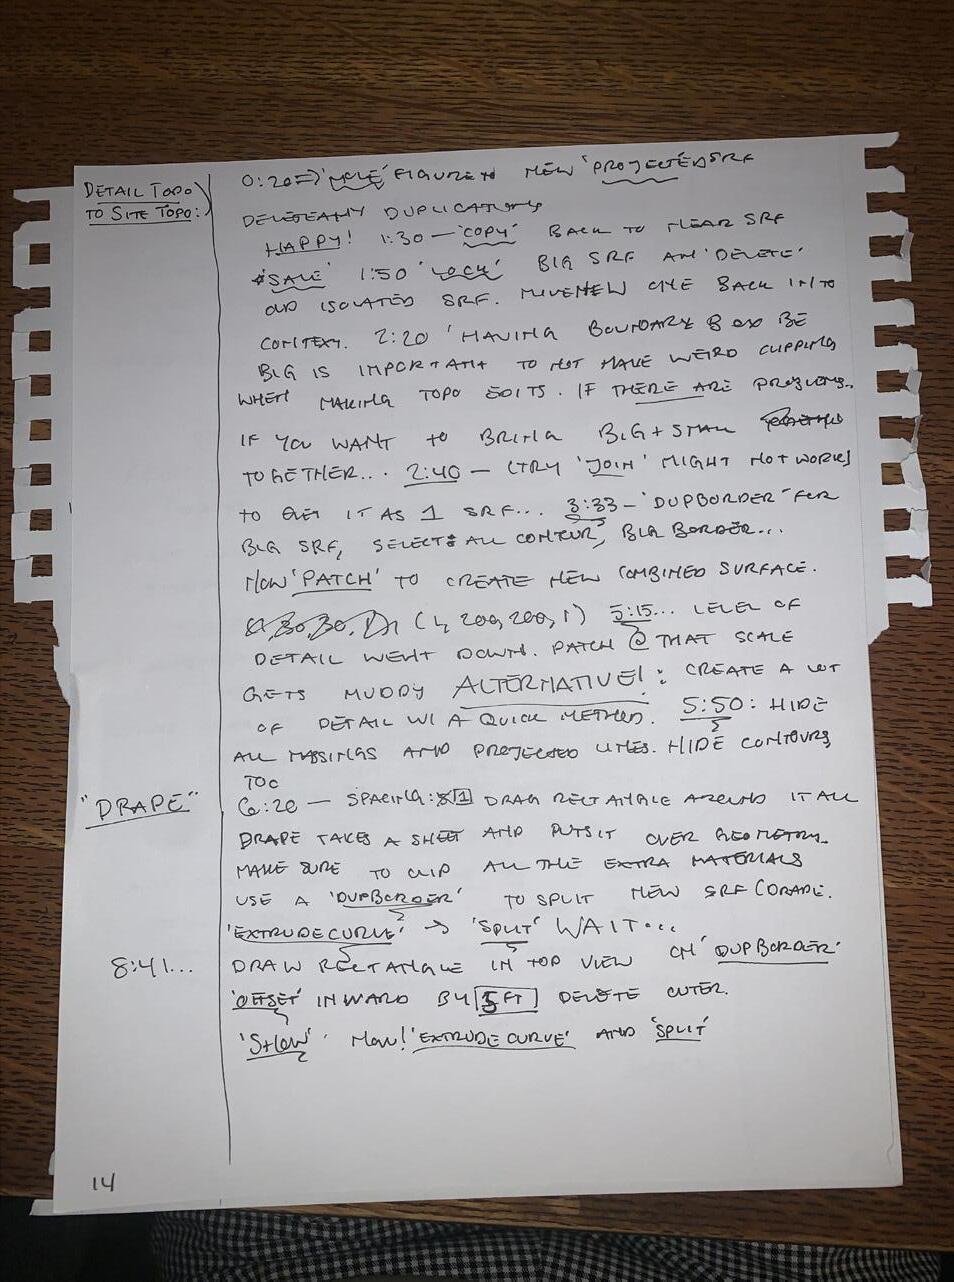 DETAIL TOPO
TO SITE TOPO:
0:20 => 'MOVE' FIGURE NEW 'PROJECTED SRF
DELETE ANY DUPLICATIONS
HAPPY! 1:30 — 'COPY' BACK TO NEAR SRF
'SAVE' 1:50 'LOCK' BIG SRF AN 'DELETE'
OLD ISOLATED SRF. MOVE NEW ONE BACK INTO
CONTEXT. 2:20 'HAVING BOUNDARY BOX BE
BIG IS IMPORTANT TO NOT HAVE WEIRD CLIPPING
WHEN MAKING TOPO EDITS. IF THERE ARE PROBLEMS..
IF YOU WANT TO BRING BIG + SMALL
TOGETHER... 2:40 — (TRY 'JOIN' MIGHT NOT WORK)
TO GET IT AS 1 SRF... 3:33 — 'DUPBORDER' FOR
BIG SRF, SELECT ALL CONTOUR, BIG BORDER...
NOW 'PATCH' TO CREATE NEW COMBINED SURFACE.
(1, 200, 200, 1) 5:15... LEVEL OF
DETAIL WENT DOWN. PATCH @ THAT SCALE
GETS MUDDY ALTERNATIVE!: CREATE A LOT
OF DETAIL W/ A QUICK METHOD. 5:50: HIDE
ALL MASSINGS AND PROJECTED LINES. HIDE CONTOURS
TOO
"DRAPE"
6:20 — SPACING: 1 DRAG RECTANGLE AROUND IT ALL
DRAPE TAKES A SHEET AND PUTS IT OVER GEOMETRY.
MAKE SURE TO CLIP ALL THE EXTRA MATERIALS
USE A 'DUPBORDER' TO SPLIT NEW SRF (DRAPE.
'EXTRUDECURVE' → 'SPLIT' WAIT...
8:41...
DRAW RECTANGLE IN TOP VIEW ON 'DUPBORDER'
'OFFSET' INWARD BY 5 FT DELETE OUTER.
'SHOW'. NOW! 'EXTRUDECURVE' AND 'SPLIT'
14